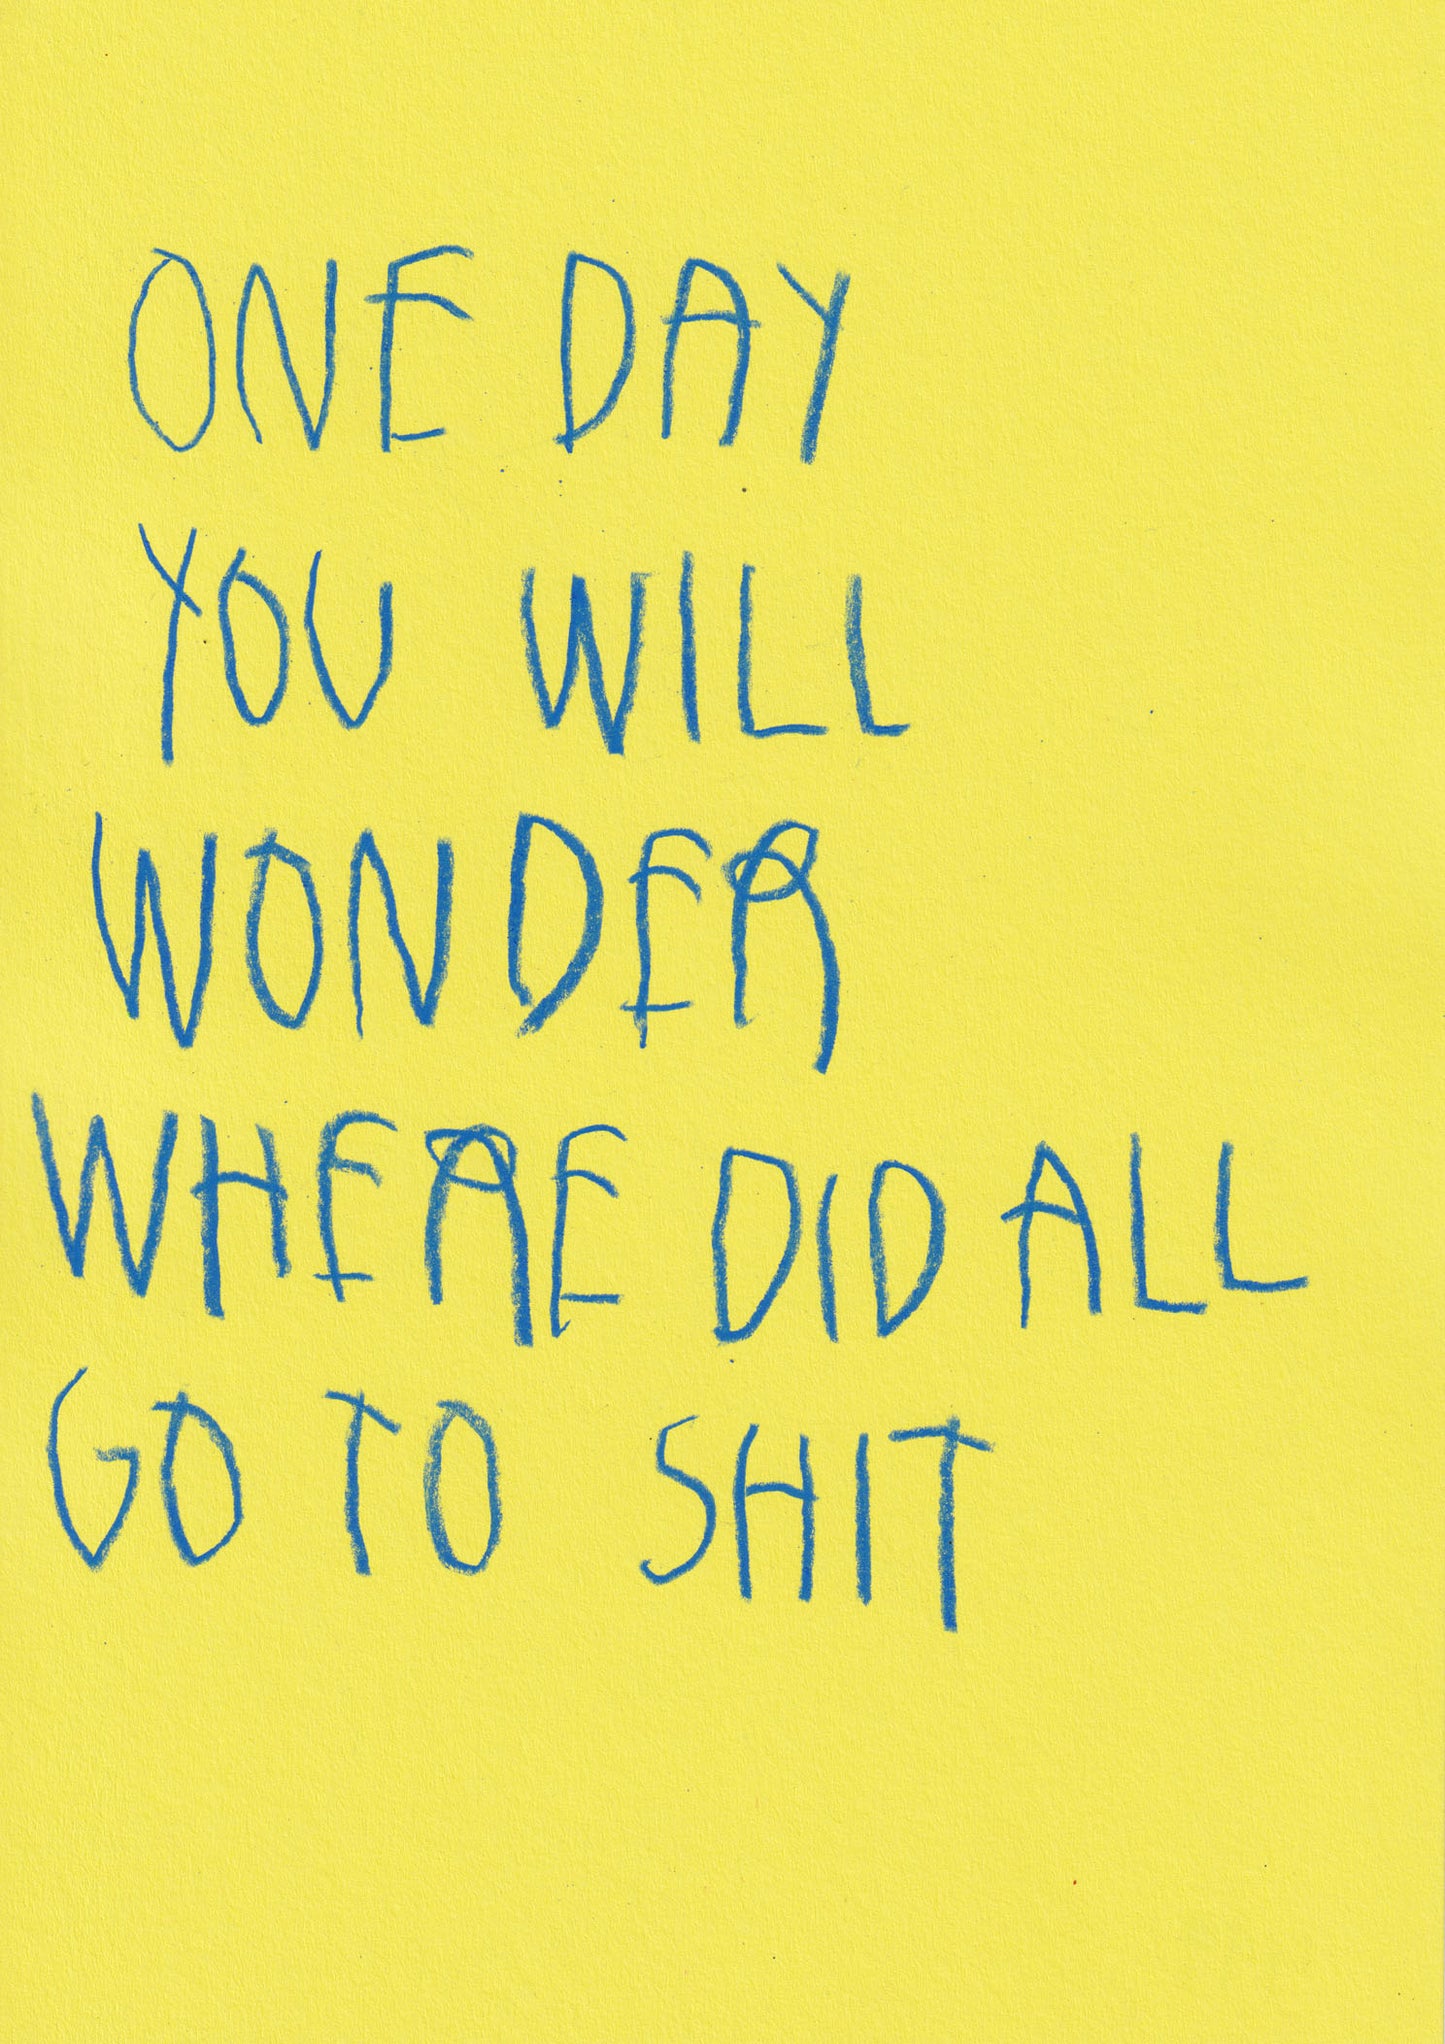 ONE DAY
YOU WILL
WONDER
WHERE DID ALL
GO TO SHIT